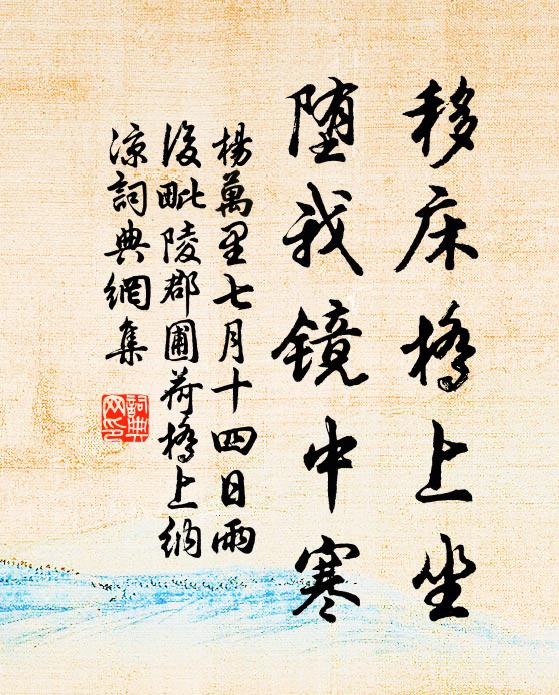 移床橋上坐
堕我镜中寒
楊萬里七月十四日雨
後毗陵郡圃荷橋上納
凉詞典網集
詞典
网印